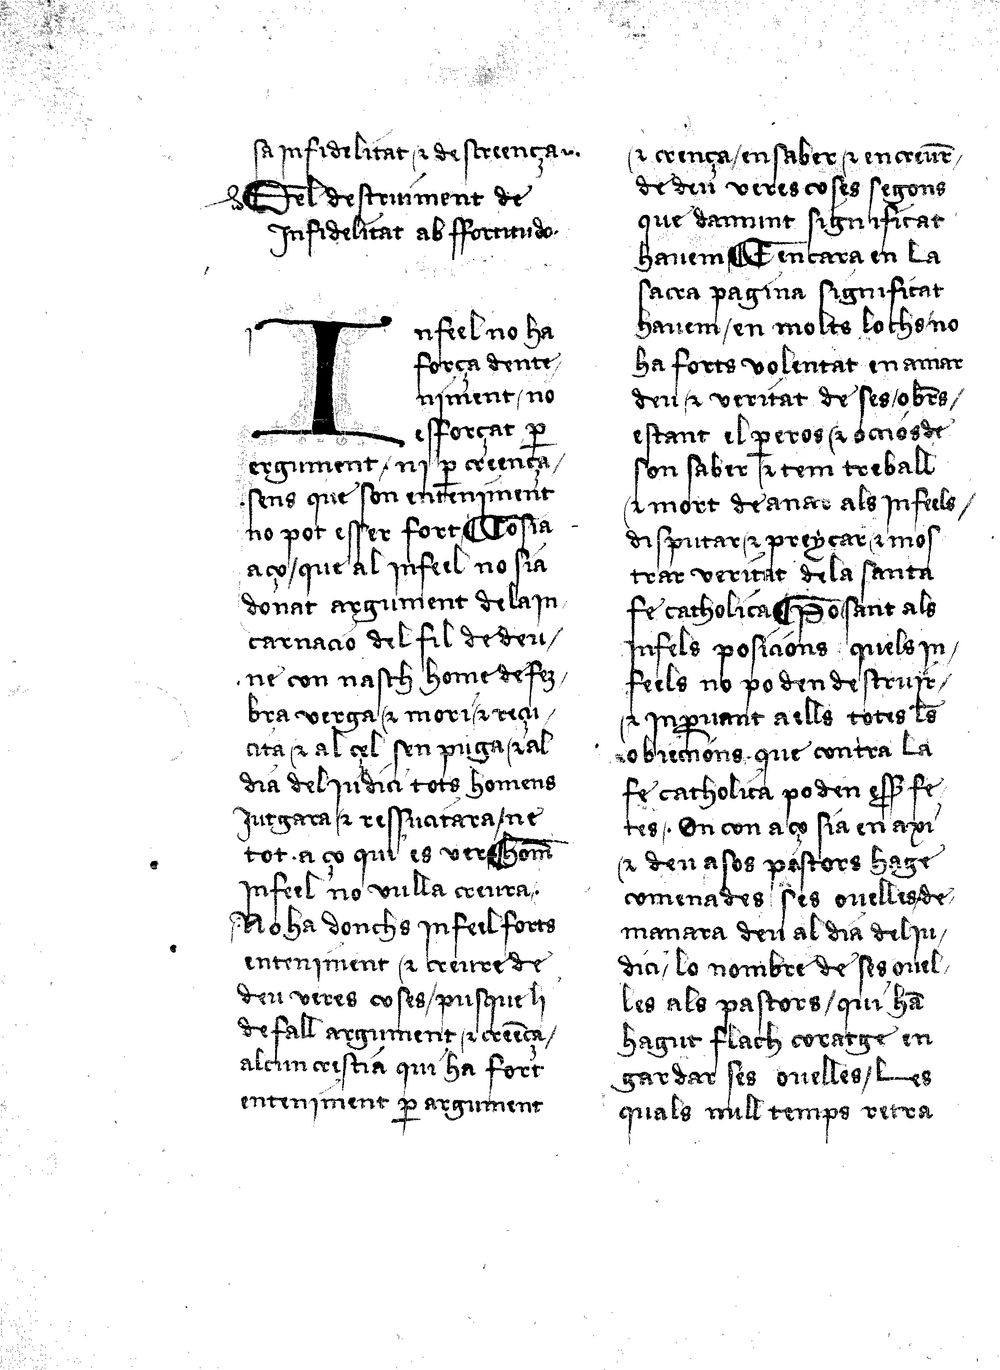 sa infidelitat / ⁊ descreença.
Del destruiment de
Infidelitat ab ffortitudo.
Infeel no ha
força dente/
niment / no
esforçat p̲
ergument / ni p̲ creença /
sens que son enteniment
no pot esser fort Cosia
aço / que al infeel no sia
donat argument dela in
carnacio del fil de deu /
ne con nasch home de fez /
bra verga / ⁊ mori / ⁊ reçu /
cita / ⁊ al çel sen puga / ⁊ al
dia del judici tots homens
jutgara / ⁊ ressucitara / ne
tot aço qui es ver hom̄
infeel no vulla creura.
No ha donchs infeel forts
enteniment / ⁊ creure de
deu veres coses / pusque li
defall argument / ⁊ creēça /
alcun crestiá qui ha fort
enteniment p̲ argument
/ ⁊ crença / en saber / ⁊ en creur̄ /
de deu veres coses segons
que damunt significat
hauem E encara en la
sacra pagina significat
hauem / en molts lochs / no
ha forts volentat en amar
deu / ⁊ veritat de ses / obr̄s /
estant el p̲eros / ⁊ ociós de
son saber / ⁊ tem treball
/ ⁊ mort de anar als infeels /
disputar / ⁊ preycar / ⁊ mos
trar veritat dela santa
fe catholica Posant als
infels posicions quels in /
feels no poden destruir /
/ ⁊ inp̲uant aells totes les
obiecions que contra la
fe catholica poden ess̄ fe
tes. On con aço sia en axi
/ ⁊ deu asos pastors hage
comenades ses ouelles / de /
manara deu al dia del ju /
dici / lo nombre de ses ouel /
les als pastors / qui hā
hagut flach coratge en
gardar ses ouelles / Les
quals null temps retra